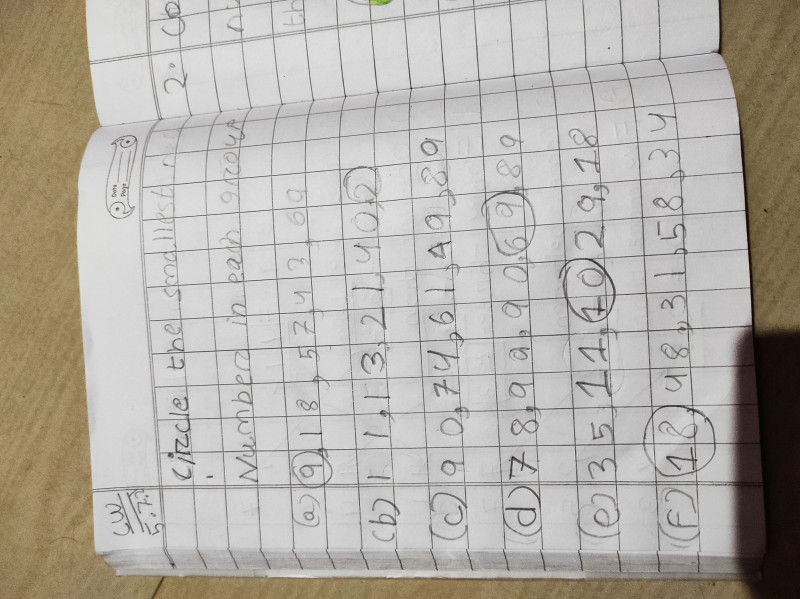 CW
5.7.2
Date
Page
Circle the smallest
Numbers in each group
(a) 9, 18, 57, 43, 69
(b) 11, 13, 21, 40, 2
(c) 90, 74, 61, 49, 89
(d) 78, 99, 90, 69, 89
(e) 35 11, 10 29, 18
(f) 18, 48, 31, 58, 34
2.